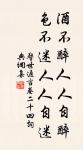 酒不醉人人自醉
色不迷人人自迷
警世通言卷二十四詞